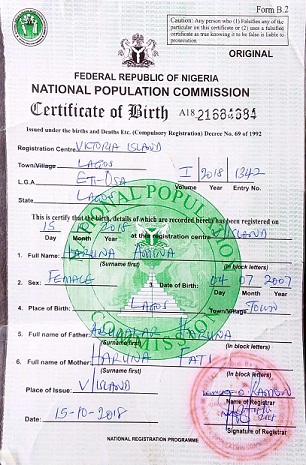 Form B.2
Caution: Any person who (1) Falsifies any of the
particular on this certificate or (2) uses a falsified
certificate as true knowing it to be false is liable to
prosecution.
ORIGINAL
FEDERAL REPUBLIC OF NIGERIA
NATIONAL POPULATION COMMISSION
Certificate of Birth A18 21684684
Issued under the births and Deaths Etc. (Compulsory Registration) Decree No. 69 of 1992
Registration Centre VICTORIA ISLAND
Town/Village LAGOS
L.G.A ETI-OSA I 2018 1342
Volume Year Entry No.
State LAGOS
This is certify that the birth, details of which are recorded herein has been registered on
15 2018 at this registration centre ISLAND
Day Month Year
1. Full Name: HARUNA AMINA
(Surname first) (in block letters)
2. Sex: FEMALE 3 Date of Birth: 04 07 2007
Day Month Year
4. Place of Birth: LAGOS TOWN
Town/Village
5. Full name of Father: HARUNA
(Surname first) (in block letters)
6. Full name of Mother: HARUNA FATI
(Surname first) (in block letters)
Place of Issue: V/ISLAND
Name of Registrar
Date: 15-10-2018
Signature of Registrar
NATIONAL REGISTRATION PROGRAMME
NATIONAL POPULATION COMMISSION